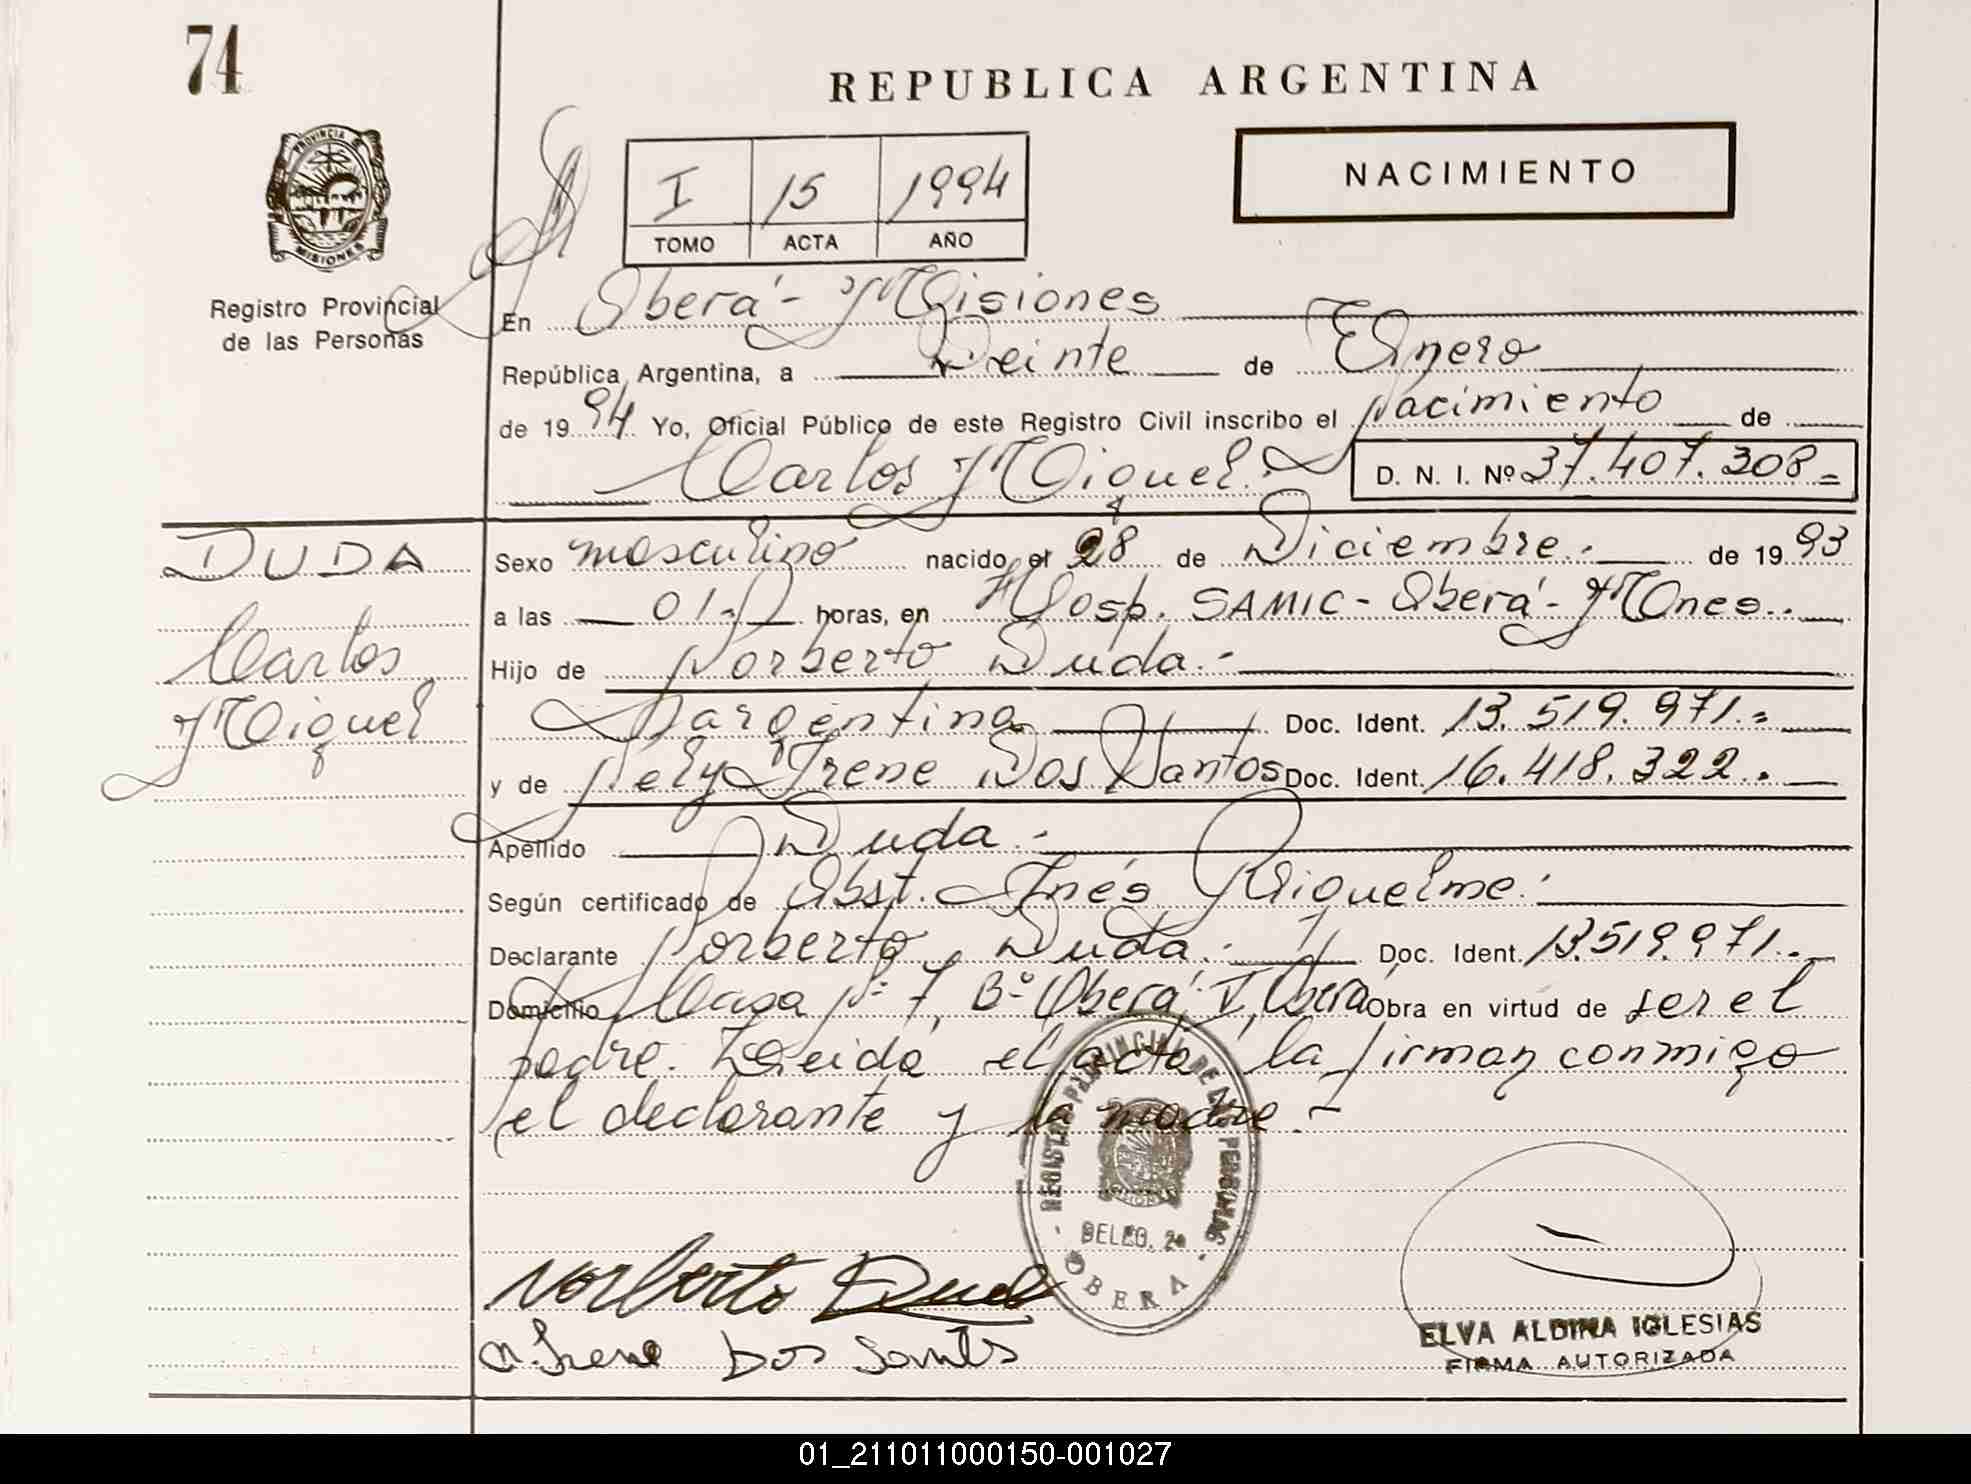 74
REPUBLICA ARGENTINA
PROVINCIA
MISIONES
I 15 1994
TOMO ACTA AÑO
NACIMIENTO
Registro Provincial
de las Personas
En Oberá - Misiones
República Argentina, a Veinte de Enero
de 1994 Yo, Oficial Público de este Registro Civil inscribo el Nacimiento de
Carlos Miguel.- D. N. I. Nº 37.407.308 =
DUDA
Carlos
Miguel
Sexo masculino nacido el 28 de Diciembre.- de 1993
a las 01.- horas, en Hosp. SAMIC - Oberá - Mnes..
Hijo de Norberto Duda.-
argentina Doc. Ident. 13.519.971.=
y de Nely Irene Dos Santos Doc. Ident. 16.418.322.
Apellido Duda.-
Según certificado de Obst. Inés Riquelme.-
Declarante Norberto Duda.- Doc. Ident. 13.519.971..
Domicilio Casa Nº 7, Bº Oberá I, Oberá Obra en virtud de ser el
padre. Leida el acta la firman conmigo
el declarante y la madre.-
REGISTRO PROVINCIAL DE LAS PERSONAS
DELEG. 2a
OBERA
Norberto Duda
N. Irene Dos Santos
ELVA ALDINA IGLESIAS
FIRMA AUTORIZADA
01_211011000150-001027